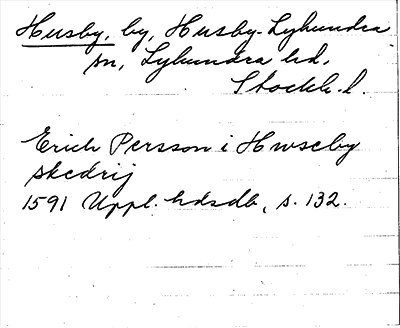 Husby, by, Husby-Lyhundra
sn, Lyhundra hd,
Stockh. l.
Erich Persson i Hwseby
skedrij
1591 Uppl. hdsdb, s. 132.